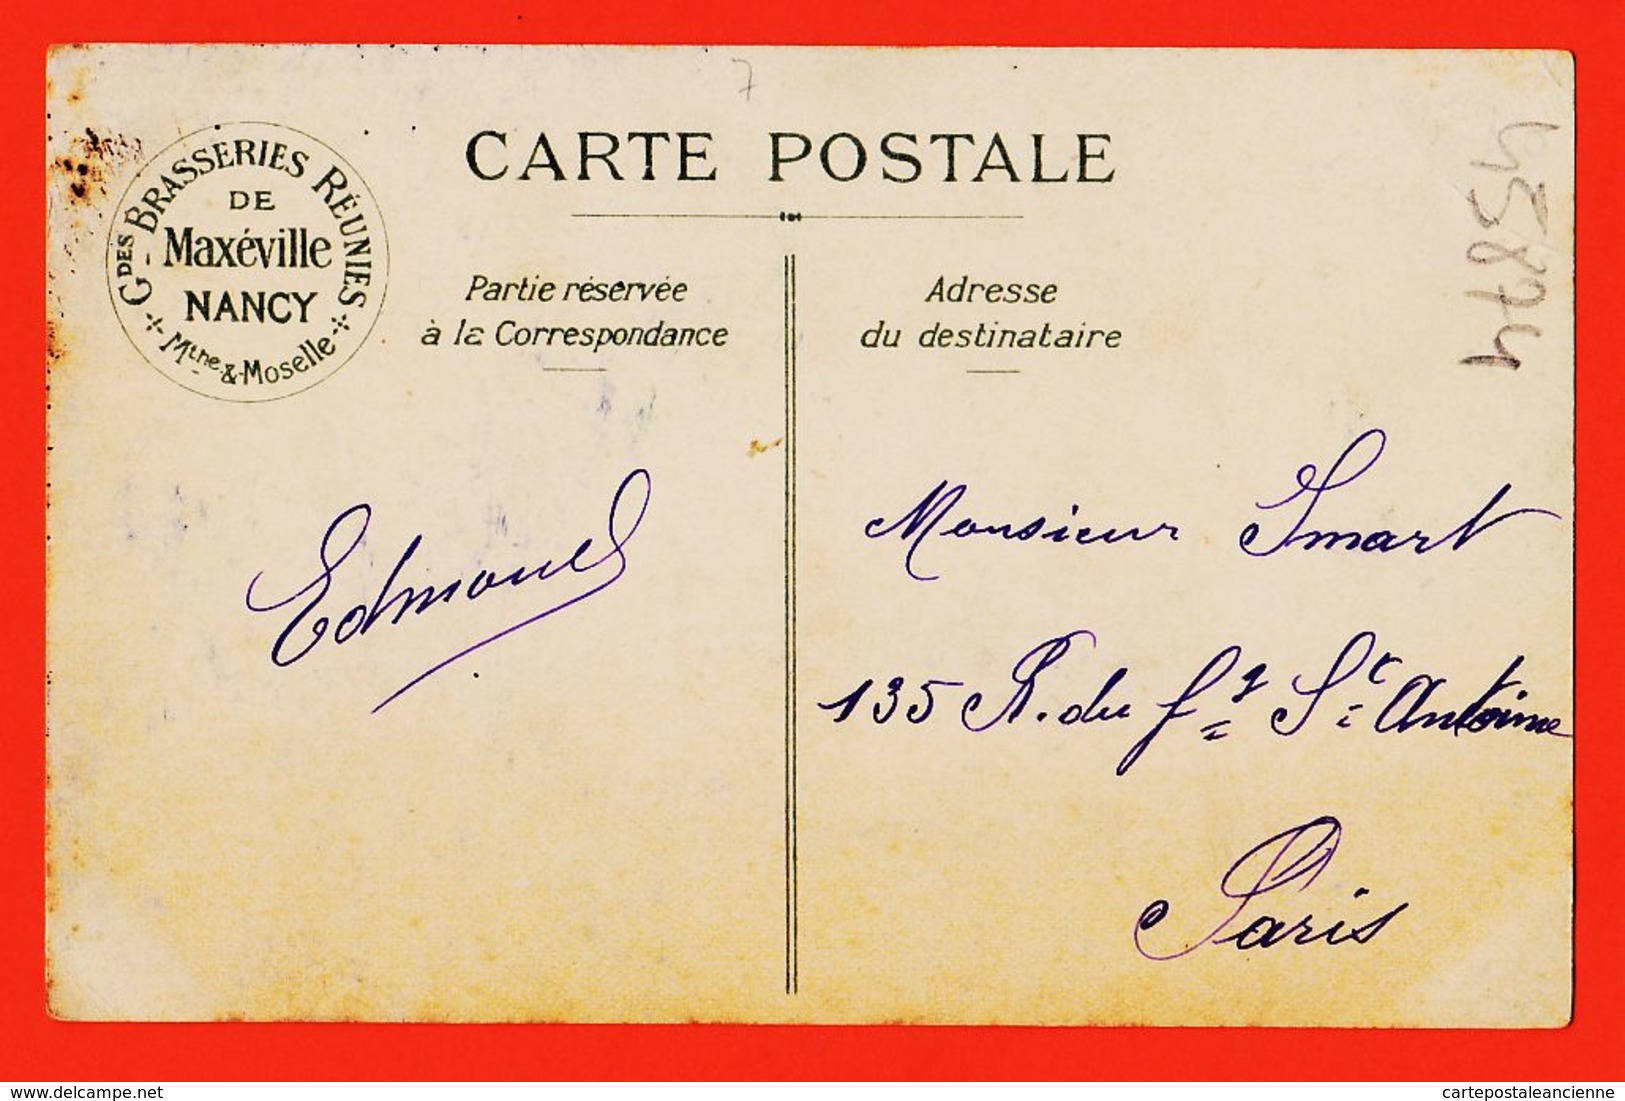 7
CARTE POSTALE
Gdes BRASSERIES RÉUNIES
DE
Maxéville
NANCY
Mthe & Moselle
Partie réservée
à la Correspondance
Adresse
du destinataire
45874
Edmond
Monsieur Smart
135 R. du fg St Antoine
Paris
delcampe.net
cartepostaleancienne